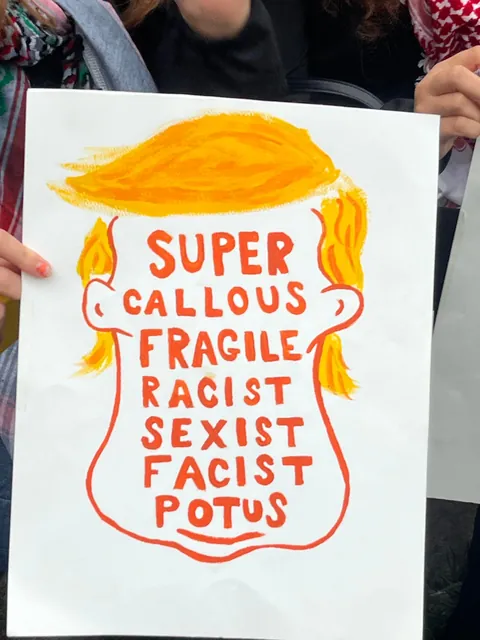 SUPER
CALLOUS
FRAGILE
RACIST
SEXIST
FACIST
POTUS